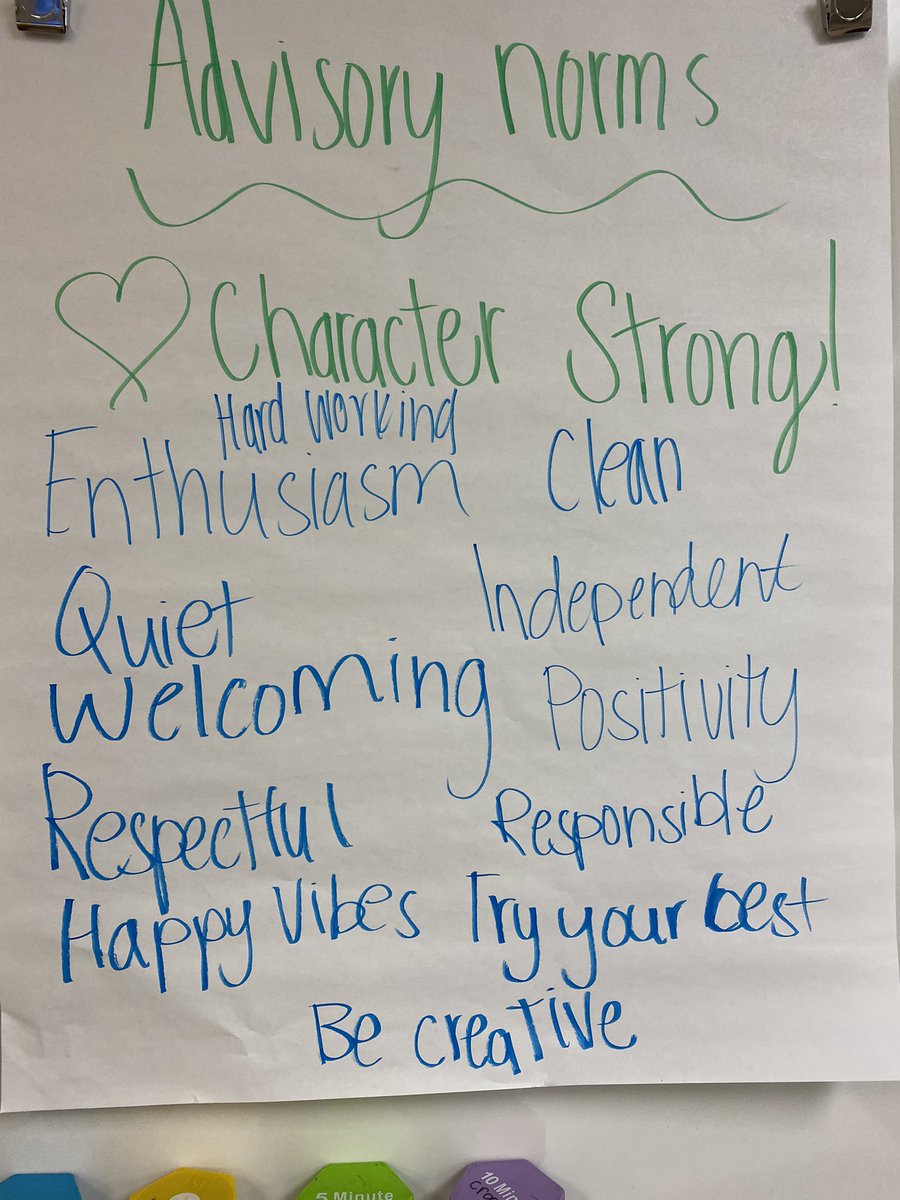 Advisory norms
Character Strong!
Hard Working
Enthusiasm Clean
Quiet Independent
Welcoming Positivity
Respectful Responsible
Happy Vibes Try your best
Be creative
5 Minute
10 Min